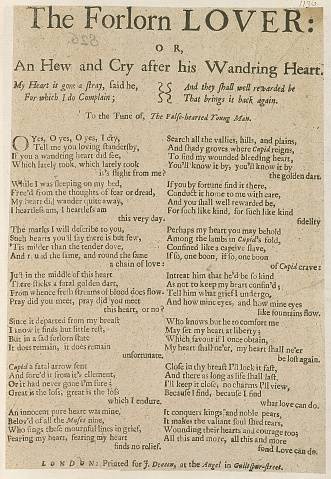 The Forlorn LOVER:
OR,
An Hew and Cry after his Wandring Heart.
My Heart is gone a stray, said he,
For which I do Complain;
And they shall well rewarded be
That brings it back again.
To the Tune of, The False-hearted Young Man.
O Yes, O yes, O yes, I cry,
Tell me you loving standersby,
If you a wandring heart did see,
Which lately took, which lately rook
it's flight from me?
While I was sleeping on my bed,
Free'd from the thoughts of fear or dread,
My heart did wander quite away,
I heartless am, I heartless am
this very day.
The marks I will describe to you,
Such hearts you'll say there is but few,
'Tis milder than the tender dove,
And round the same, and round the same
a chain of love:
Just in the middle of this heart
There sticks a fatal golden dart,
From whence fresh streams of blood does flow
Pray did you meet, pray did you meet
this heart, or no?
Since it departed from my breast
I know it finds but little rest,
But in a sad forlorn state
It does remain, it does remain
unfortunate.
Cupid's fatal arrow sent
And forc'd it from it's element,
Or it had never gone a'm sure;
Great is the loss, great is the loss
which I endure.
An innocent pure heart was mine,
Belov'd of all the Muses nine,
Who sings these mournful lines in grief,
Fearing my heart, fearing my heart
finds no relief.
Search all the vallies, hills, and plains,
And shady groves where Cupid reigns,
To find my wounded bleeding heart,
You'll know it by, you'll know it by
the golden dart.
If you by fortune find it there,
Conduct it home to me with care,
And you shall well rewarded be,
For such like kind, for such like kind
fidelity
Perhaps my heart you may behold
Among the lambs in Cupid's fold,
Confined like a captive slave,
If so, one boon, if so, one boon
of Cupid crave:
Intreat him that he'd be so kind
As not to keep my heart confin'd;
Tell him what grief I undergo,
And how mine eyes, and how mine eyes
like fountains flow.
Who knows but he to comfore me
May set my heart at liberty;
Which favour if I once obtain,
My heart shall ne'er, my heart shall ne'er
be lost again.
Close in thy breast I'll lock it fast,
And there as long as life shall last,
I'll keep it close, no charms I'll view,
Because I find, because I find
what love can do.
It conquers kings and noble pears,
It makes the valiant soul shed tears,
Wounding their hearts and courage too;
All this and more, all this and more
fond Love can do.
LONDON: Printed for J. Deacon, at the Angel in Guiltspur-street.